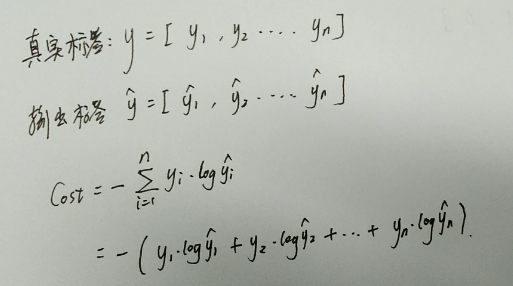 真实标签: y = [ y₁ , y₂ ···· yₙ ]
输出标签 ŷ = [ ŷ₁ , ŷ₂ ···· ŷₙ ]
Cost = - ∑ⁿᵢ₌₁ yᵢ · log ŷᵢ
= - ( y₁·log ŷ₁ + y₂·log ŷ₂ + ··· + yₙ·log ŷₙ ).